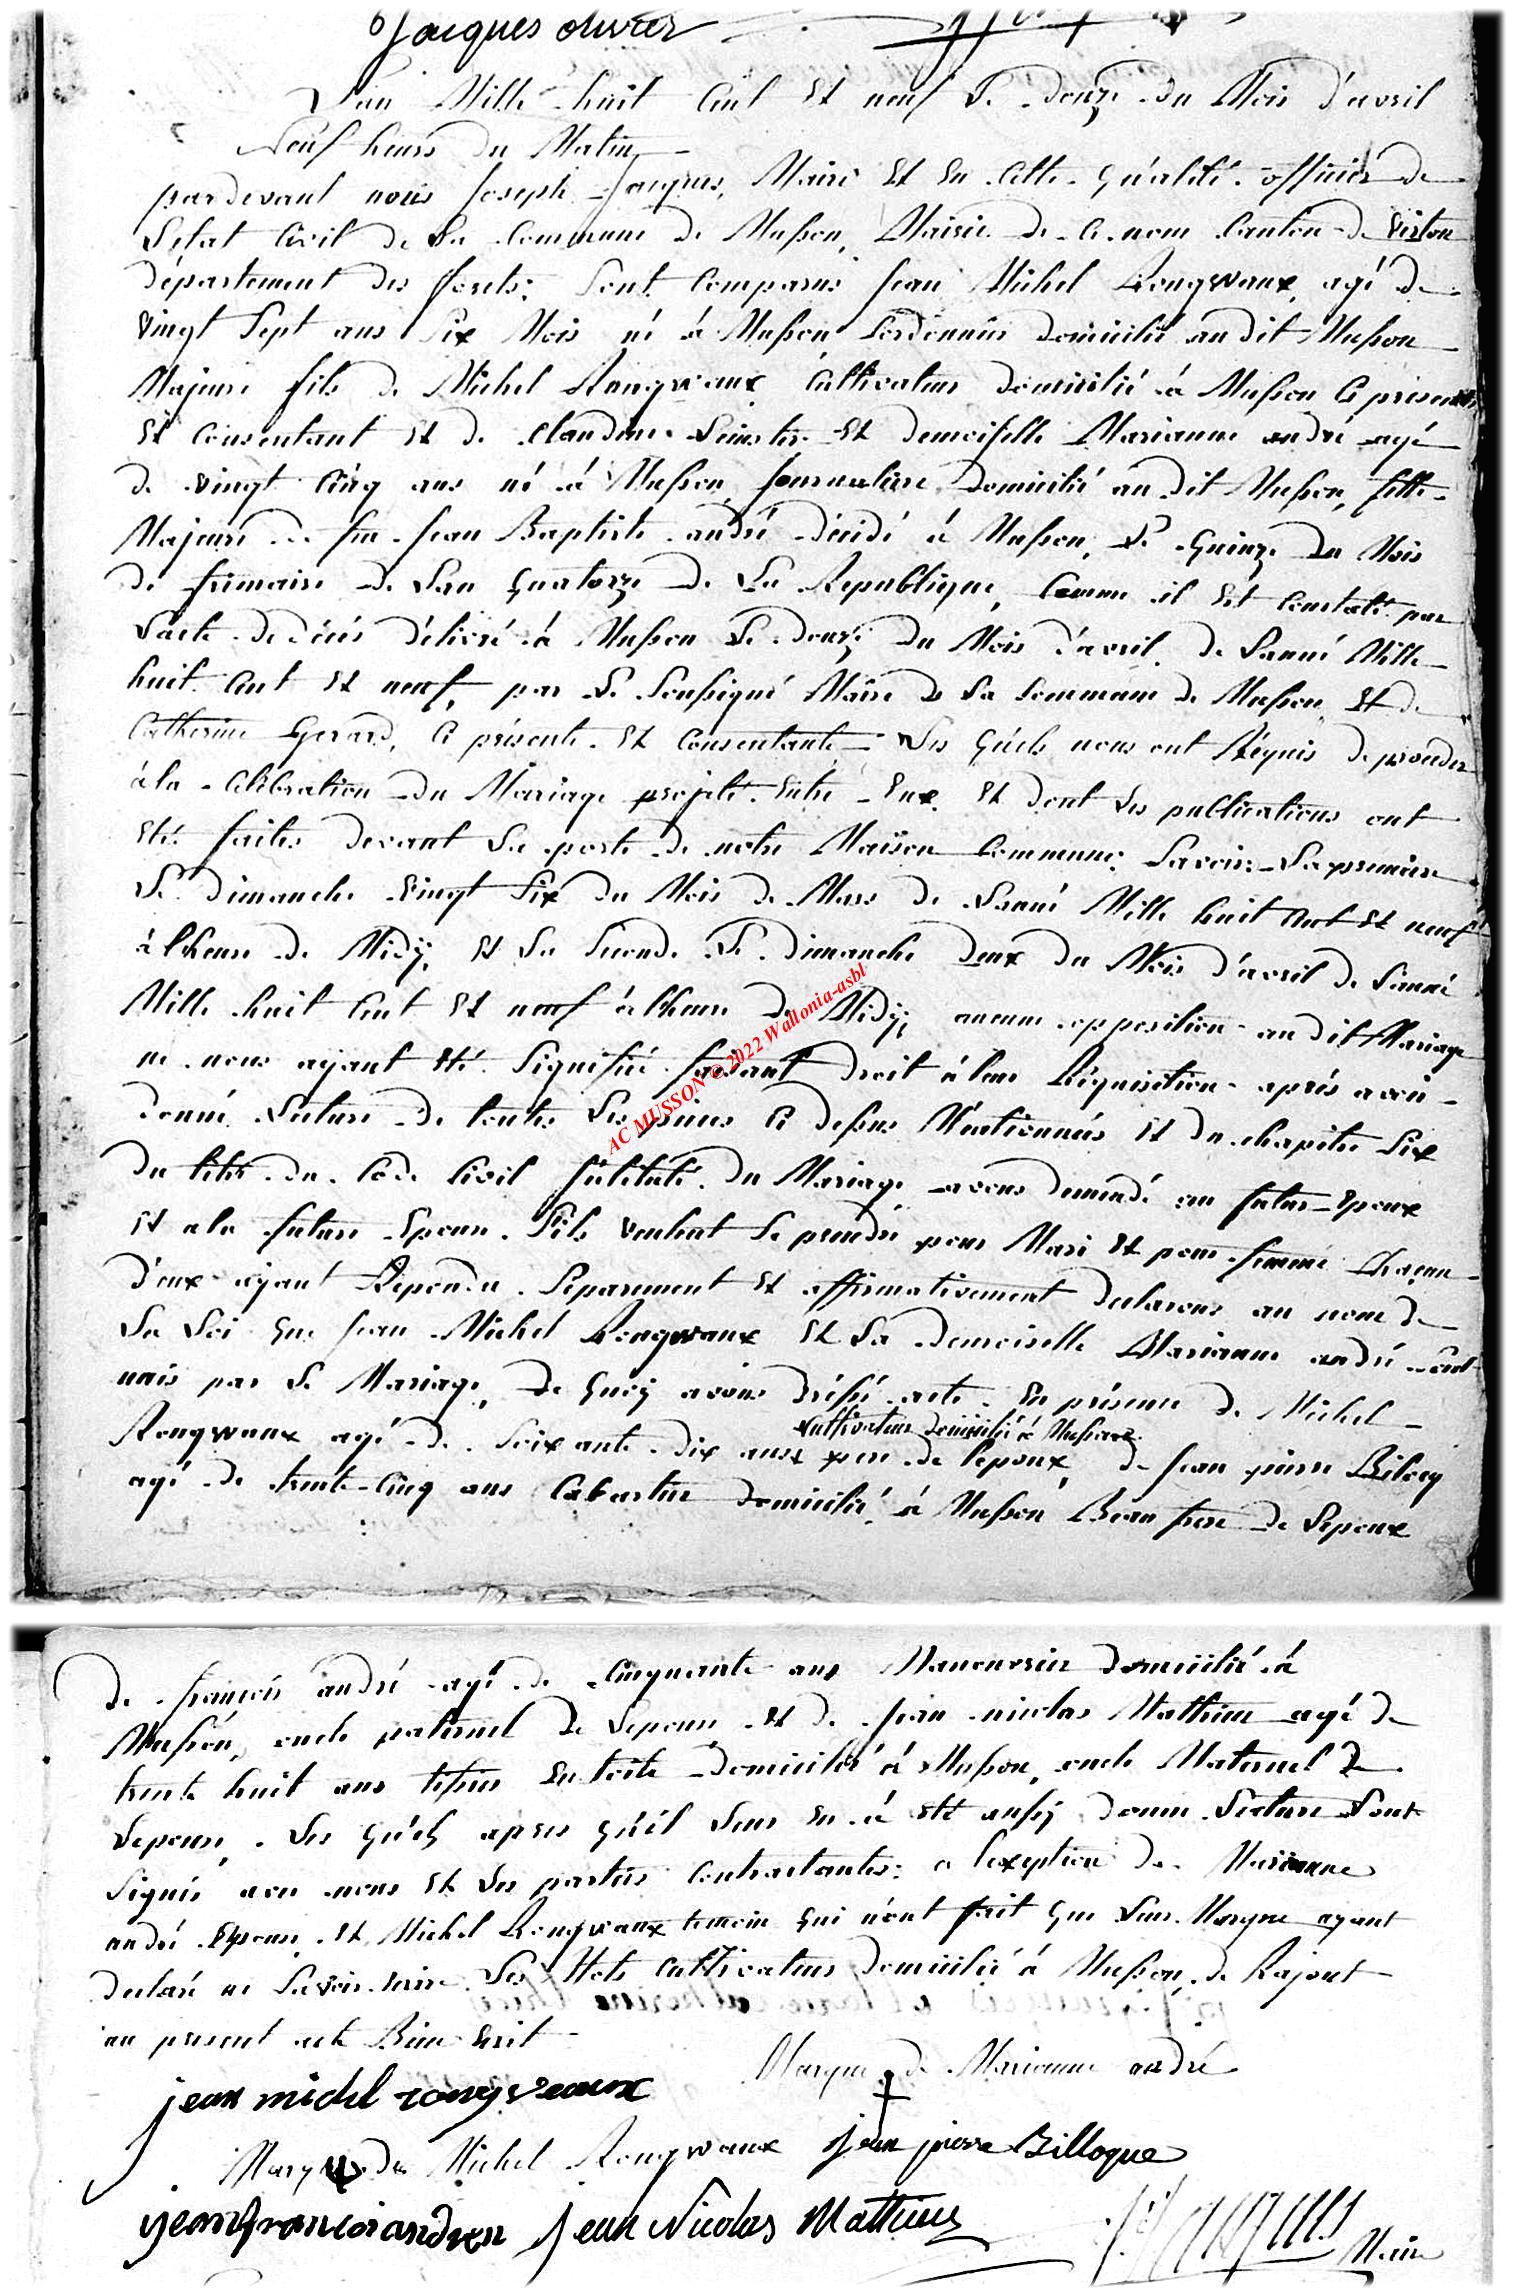 Jacques olivier
L'an Mille huit Cent Et neuf Le douze du Mois d'avril
Neuf heurs du Matin
pardevant nous Joseph Jacques, Maire Et En Cette Qualité officier de
L'etat Civil de La Commune de Musson, Mairie de Ce nom Canton de Virton
département des forets; Sont Comparus Jean Michel Rongvaux, agé de
Vingt Sept ans Six Mois né à Musson Cordonnier domicilié au dit Musson
Majeure fils de Michel Rongvaux Cultivateur domicilié à Musson Ci présent
Et Consentant Et de Claudine Et demoiselle Marianne andré agé
de vingt Cinq ans né à Musson, Journaliere domicilié au dit Musson, fille
Majeure de feu Jean Baptiste andré décédé à Musson, Le Quinze du Mois
de frimaire de L'an Quatorze de La Republique, Comme il Est Constaté par
L'acte de décès délivré à Musson Le douze du Mois d'avril de L'anné Mille
huit Cent Et neuf, par Le Soussigné Maire de La Commune de Musson, Et de
Catherine Gerard, Ci présente Et Consentante; Les Quels nous ont Réquis de proceder
à la Célébration du Mariage projeté Entre Eux Et dont Les publications ont
Eté faites devant La porte de notre Maison Commune; Savoir; La premiere
Le dimanche Vingt Six du Mois de Mars de L'anné Mille huit Cent Et neuf
à l'heure de Midÿ, Et La Seconde Le dimanche deux du Mois d'avril de L'anné
Mille huit Cent Et neuf à l'heure de Midÿ; aucune opposition au dit Mariage
ne nous ayant Eté Signifiée faisant droit à leur Réquisition après avoir
donné Lecture de toutes Les pieces Ci dessus Mentionnées Et du chapitre Six
du titre du Code Civil Intitulé du Mariage avons demandé au futur Epoux
Et a la future Epouse S'ils veulent Se prendre pour Mari Et pour femme Chacun
d'eux ayant Repondu Separement Et affirmativement declarons au nom de
La Loi Que Jean Michel Rongvaux Et La demoiselle Marianne andré sont
unis par Le Mariage, de Quoÿ avons dréssé acte En présence de Michel
Cultivateur domicilié à Musson
Rongvaux agé de Soixante dix ans pere de l'epoux, de Jean pierre Bilocq
agé de trente Cinq ans Cabartier domicilié à Musson Beau frere de L'epoux
de françois andré agé de Cinquante ans Manouvrier domicilié à
Musson, oncle paternel de L'epouse Et de Jean nicolas Mathieu agé de
trente huit ans tissier En toile domicilié à Musson, oncle Maternel de
L'epouse, Les Quels apres Qu'il Leur En à Eté aussÿ donné Lecture L'ont
Signés avec nous Et Les parties Contractantes; a l'exception de Marianne
andré Epouse Et Michel Rongvaux temoin Qui n'ont fait Que Leur Marque ayant
declaré ne Savoir Les Mots Cultivateur domicilié à Musson, de Rajout
au present acte Bien Ecrit
Marque de Marianne andré
jean michel rongveaux
Marque de Michel Rongvaux Jean pierre Billoque
jean francoi andren Jean Nicolas Matthieu
Maire
AC MUSSON © 2022 Wallonia-asbl